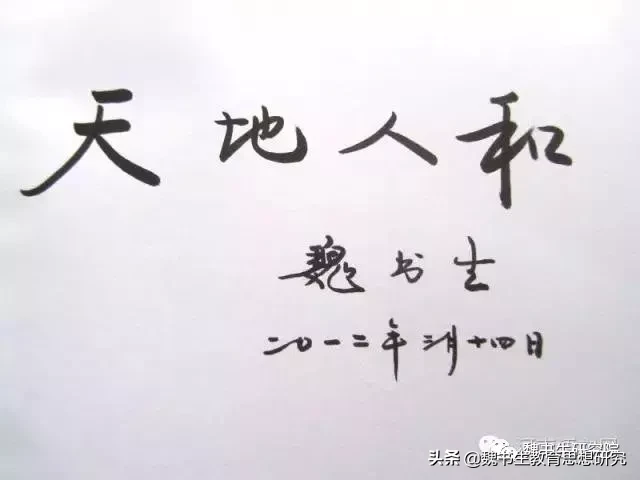 天地人和
魏书生
二〇一二年三月十四日
魏书生研究院
头条 @魏书生教育思想研究